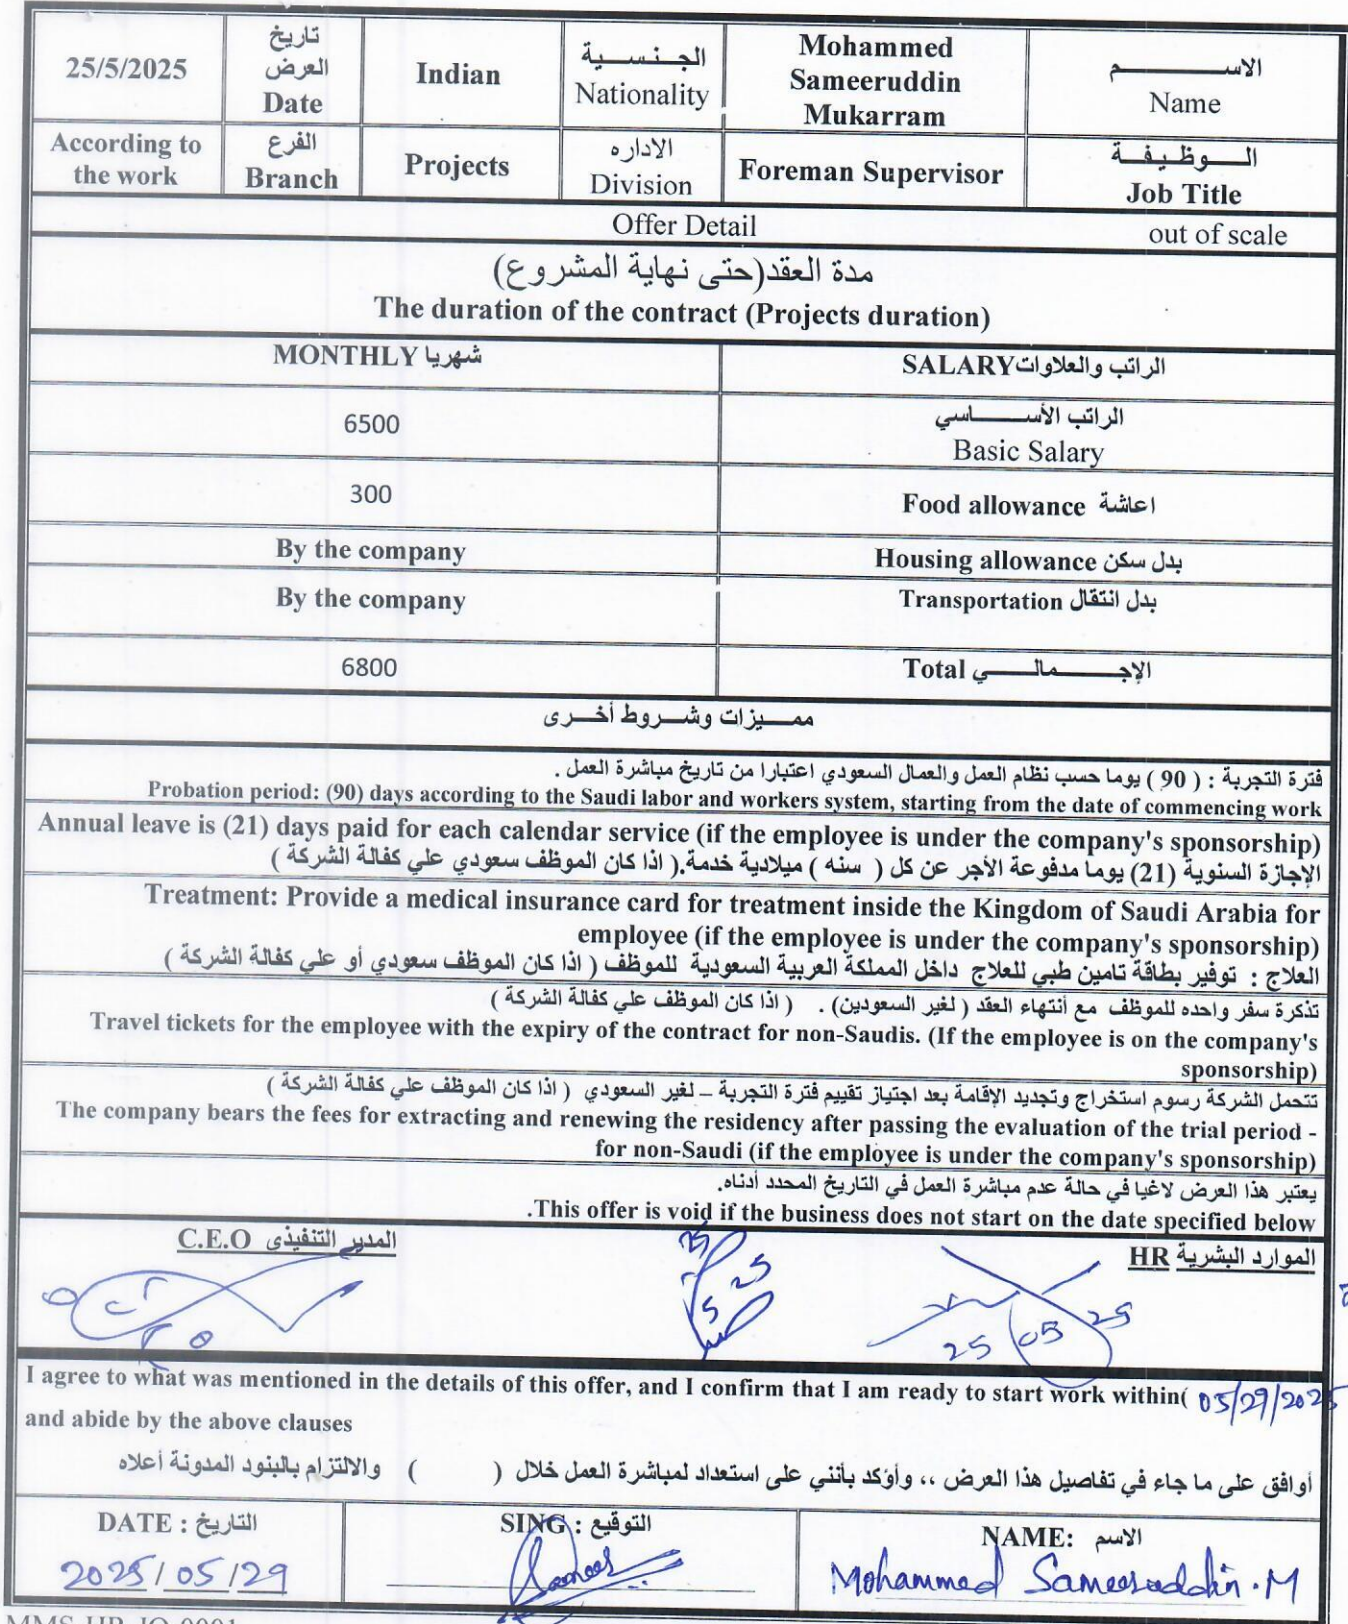 25/5/2025
تاريخ
العرض
Date
Indian
الجـنـســـيـة
Nationality
Mohammed
Sameeruddin
Mukarram
الاســــــــم
Name
According to
the work
الفرع
Branch
Projects
الاداره
Division
Foreman Supervisor
الـــــوظـيـفــة
Job Title
Offer Detail
out of scale
مدة العقد(حتى نهاية المشروع)
The duration of the contract (Projects duration)
شهريا MONTHLY
الراتب والعلاواتSALARY
6500
الراتب الأســـــــاسي
Basic Salary
300
Food allowance اعاشة
By the company
Housing allowance بدل سكن
By the company
Transportation بدل انتقال
6800
الإجـــــــمالــــــي Total
ممـــيزات وشـــروط أخـــرى
فترة التجربة : ( 90 ) يوما حسب نظام العمل والعمال السعودي اعتبارا من تاريخ مباشرة العمل .
Probation period: (90) days according to the Saudi labor and workers system, starting from the date of commencing work
Annual leave is (21) days paid for each calendar service (if the employee is under the company's sponsorship)
الإجازة السنوية (21) يوما مدفوعة الأجر عن كل ( سنه ) ميلادية خدمة.( اذا كان الموظف سعودي علي كفالة الشركة )
Treatment: Provide a medical insurance card for treatment inside the Kingdom of Saudi Arabia for
employee (if the employee is under the company's sponsorship)
العلاج : توفير بطاقة تامين طبي للعلاج داخل المملكة العربية السعودية للموظف ( اذا كان الموظف سعودي أو علي كفالة الشركة )
تذكرة سفر واحده للموظف مع أنتهاء العقد ( لغير السعودين) . ( اذا كان الموظف علي كفالة الشركة )
Travel tickets for the employee with the expiry of the contract for non-Saudis. (If the employee is on the company's
sponsorship)
تتحمل الشركة رسوم استخراج وتجديد الإقامة بعد اجتياز تقييم فترة التجربة – لغير السعودي ( اذا كان الموظف علي كفالة الشركة )
The company bears the fees for extracting and renewing the residency after passing the evaluation of the trial period -
for non-Saudi (if the employee is under the company's sponsorship)
يعتبر هذا العرض لاغيا في حالة عدم مباشرة العمل في التاريخ المحدد أدناه.
.This offer is void if the business does not start on the date specified below
المدير التنفيذى C.E.O
الموارد البشرية HR
25/05/25
I agree to what was mentioned in the details of this offer, and I confirm that I am ready to start work within( 05/29/2025
and abide by the above clauses
أوافق على ما جاء في تفاصيل هذا العرض ،، وأؤكد بأنني على استعداد لمباشرة العمل خلال ( ) والالتزام بالبنود المدونة أعلاه
DATE : التاريخ
2025/05/29
SING : التوقيع
NAME: الاسم
Mohammed Sameeruddin.M
MMS-HR-JO-0001